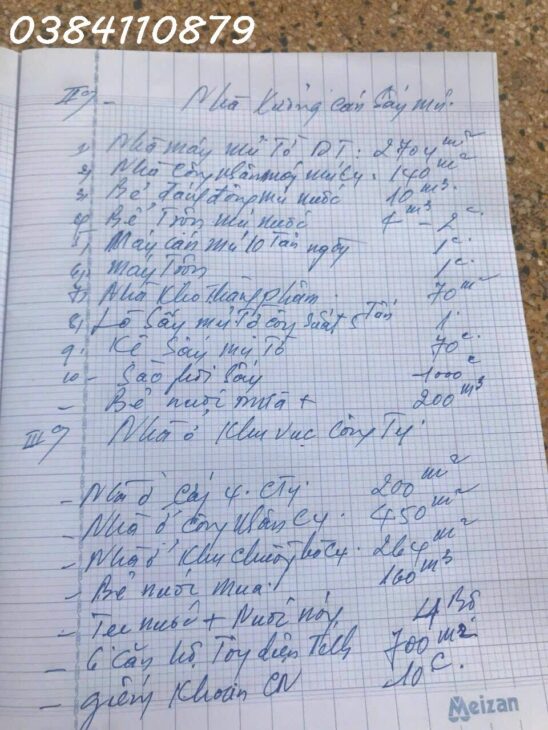 0384110879
II - Nhà xưởng cán sấy mủ.
1) Nhà máy mủ Tờ DT: 2704 m²
2) Nhà công nhân máy cty. 140 m²
3) Bể đánh đông mủ nước 10 m³.
4) Bể Trộn mủ nước 7 m³ - 2 c.
5) Máy cán mủ 10 Tấn ngày 1 c.
6) máy Trộn 1 c.
7) Nhà Kho Thành phẩm. 70 m²
8) Lò Sấy mủ Tờ công suất 5 Tấn 1
9. Kệ Sấy mủ Tờ 70 c.
10 - Sào phơi Sấy 1000 c
- Bể nước mưa + 200 m³
III Nhà ở Khu vực Công Ty.
- Nhà ở cty 200 m²
- Nhà ở công nhân cty. 450 m²
- Nhà ở Khu 264 m²
- Bể nước mưa 160 m³
- Tec nước + Nước nóng 4 Bộ
- 6 căn hộ 700 m²
- giếng Khoan CN 10 c.
Meizan